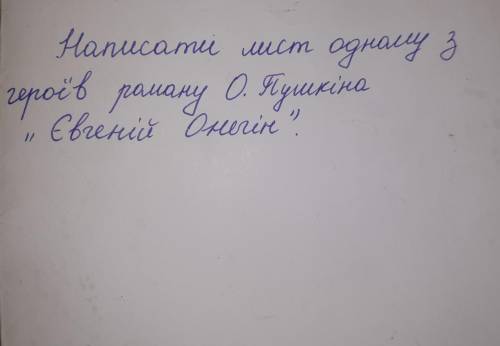 Написати лист одному з
героїв роману О. Пушкіна
„Євгеній Онегін”.